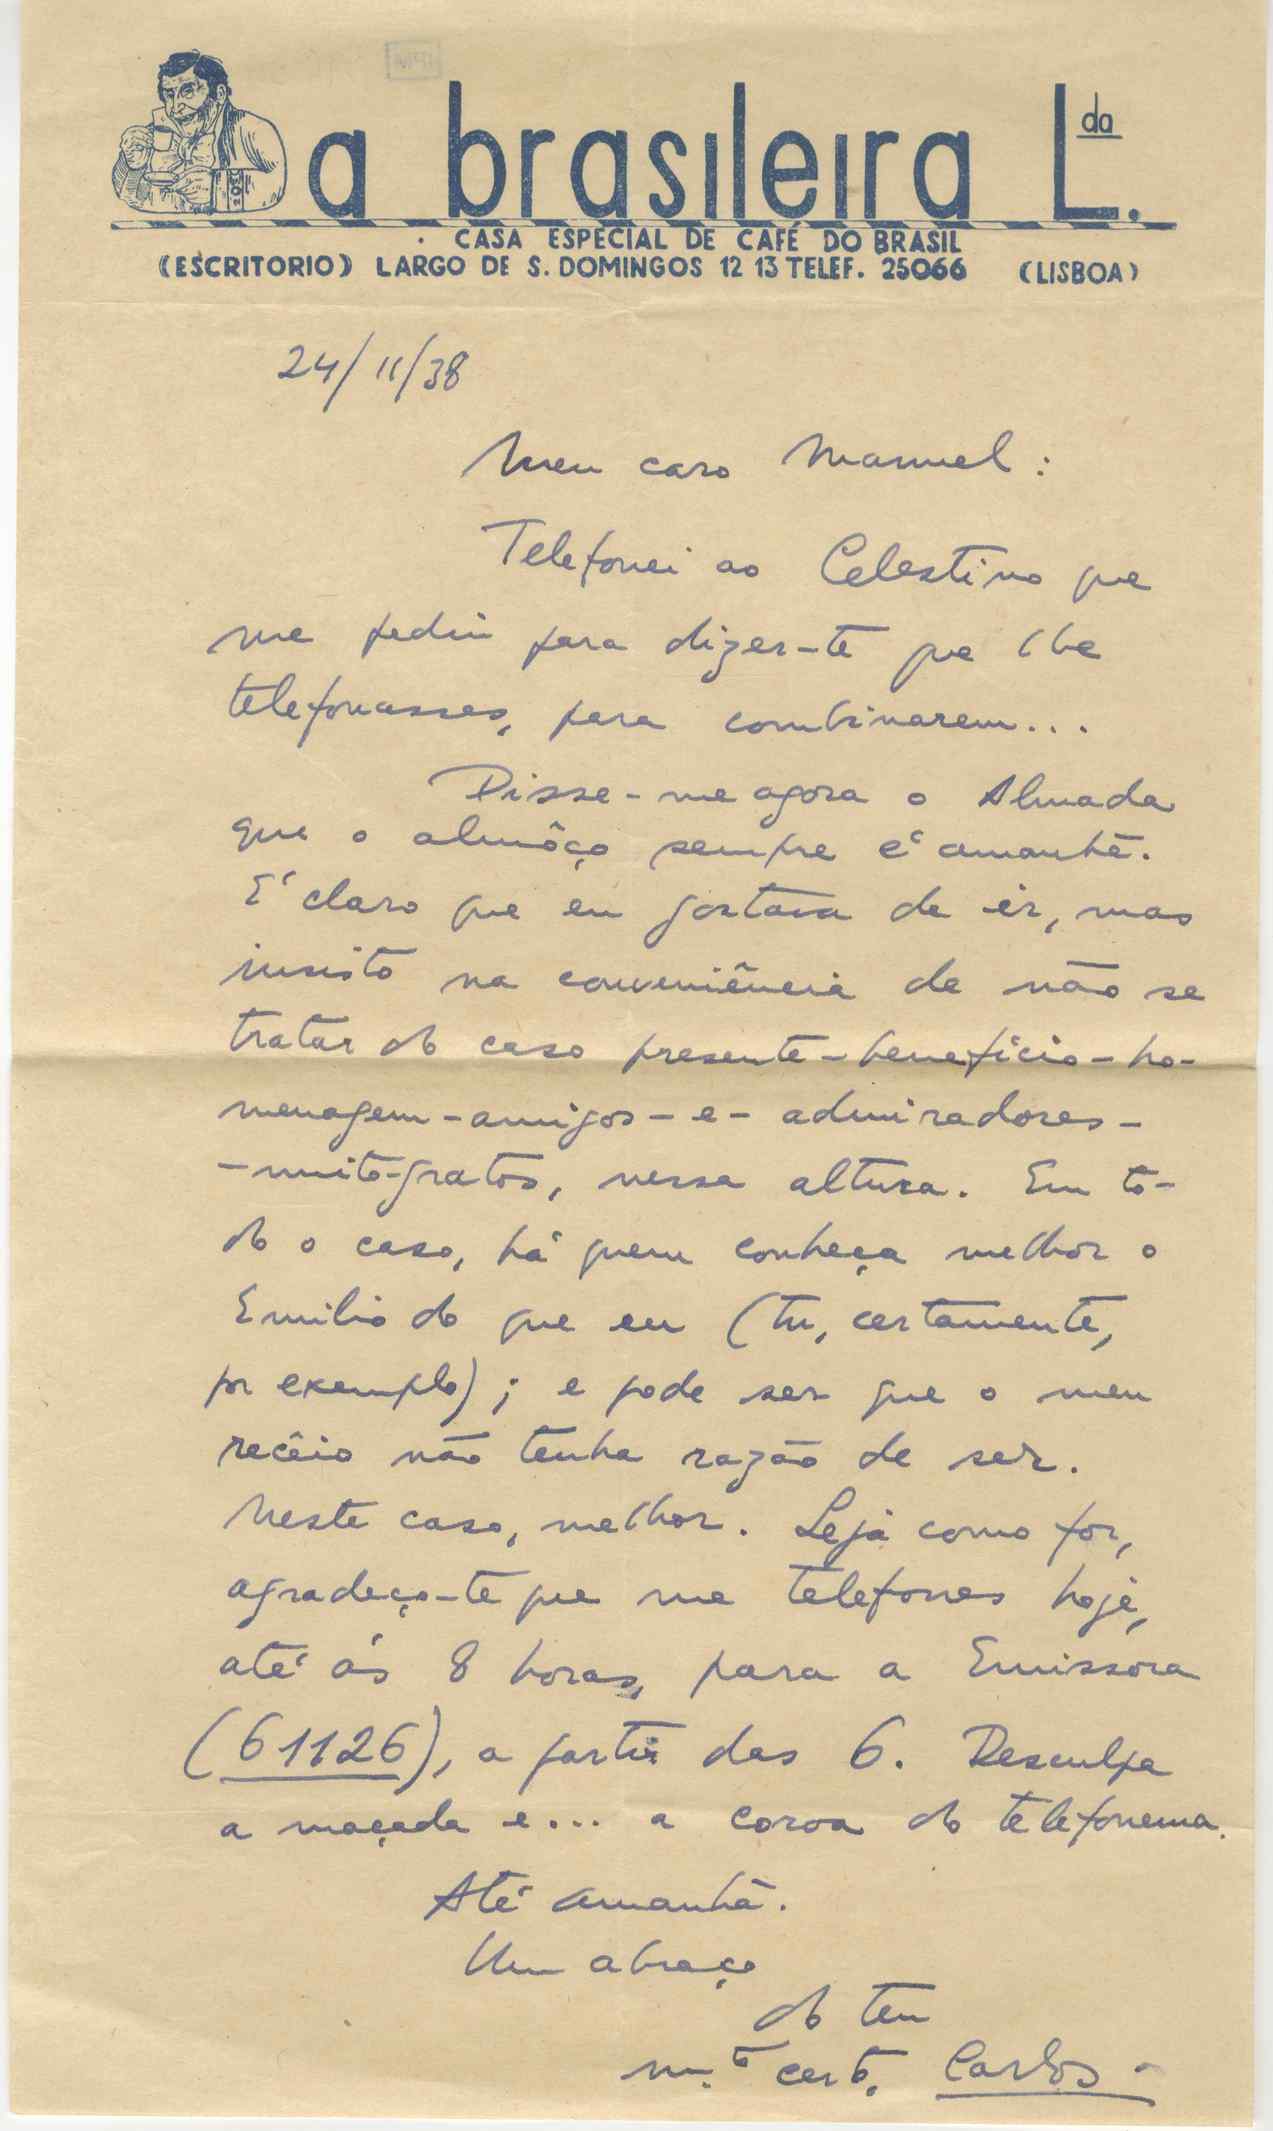 a brasileira L.da
CASA ESPECIAL DE CAFÉ DO BRASIL
(ESCRITORIO) LARGO DE S. DOMINGOS 12 13 TELEF. 25066 (LISBOA)
24/11/38
Meu caro Manuel:
Telefonei ao Celestino que
me pediu para dizer-te que lhe
telefonasses, para combinarem...
Disse-me agora o Almada
que o almôço sempre é amanhã.
É claro que eu gostava de ir, mas
insisto na conveniência de não se
tratar do caso presente-benefício-ho-
menagem-amigos-e-admiradores-
-muito-gratos, nessa altura. Em to-
do o caso, há quem conheça melhor o
Emilio do que eu (tu, certamente,
por exemplo); e pode ser que o meu
recêio não tenha razão de ser.
Neste caso, melhor. Seja como for,
agradeço-te que me telefones hoje,
até ás 8 horas, para a Emissora
(61126), a partir das 6. Desculpa
a maçada e... a coroa do telefonema.
Até amanhã.
Um abraço
do teu
m.to certo. Carlos